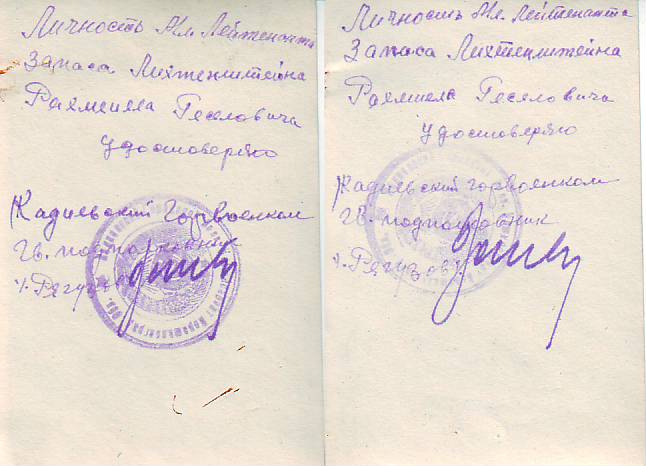 Личность Мл. Лейтенанта
Запаса Лихтенштейна
Рахмиела Геселовича
удостоверяю
Кадиевский Горвоенком
Гв. подполковник
Личность Мл. Лейтенанта
Запаса Лихтенштейна
Рахмиела Геселовича
удостоверяю
Кадиевский горвоенком
Гв. подполковник